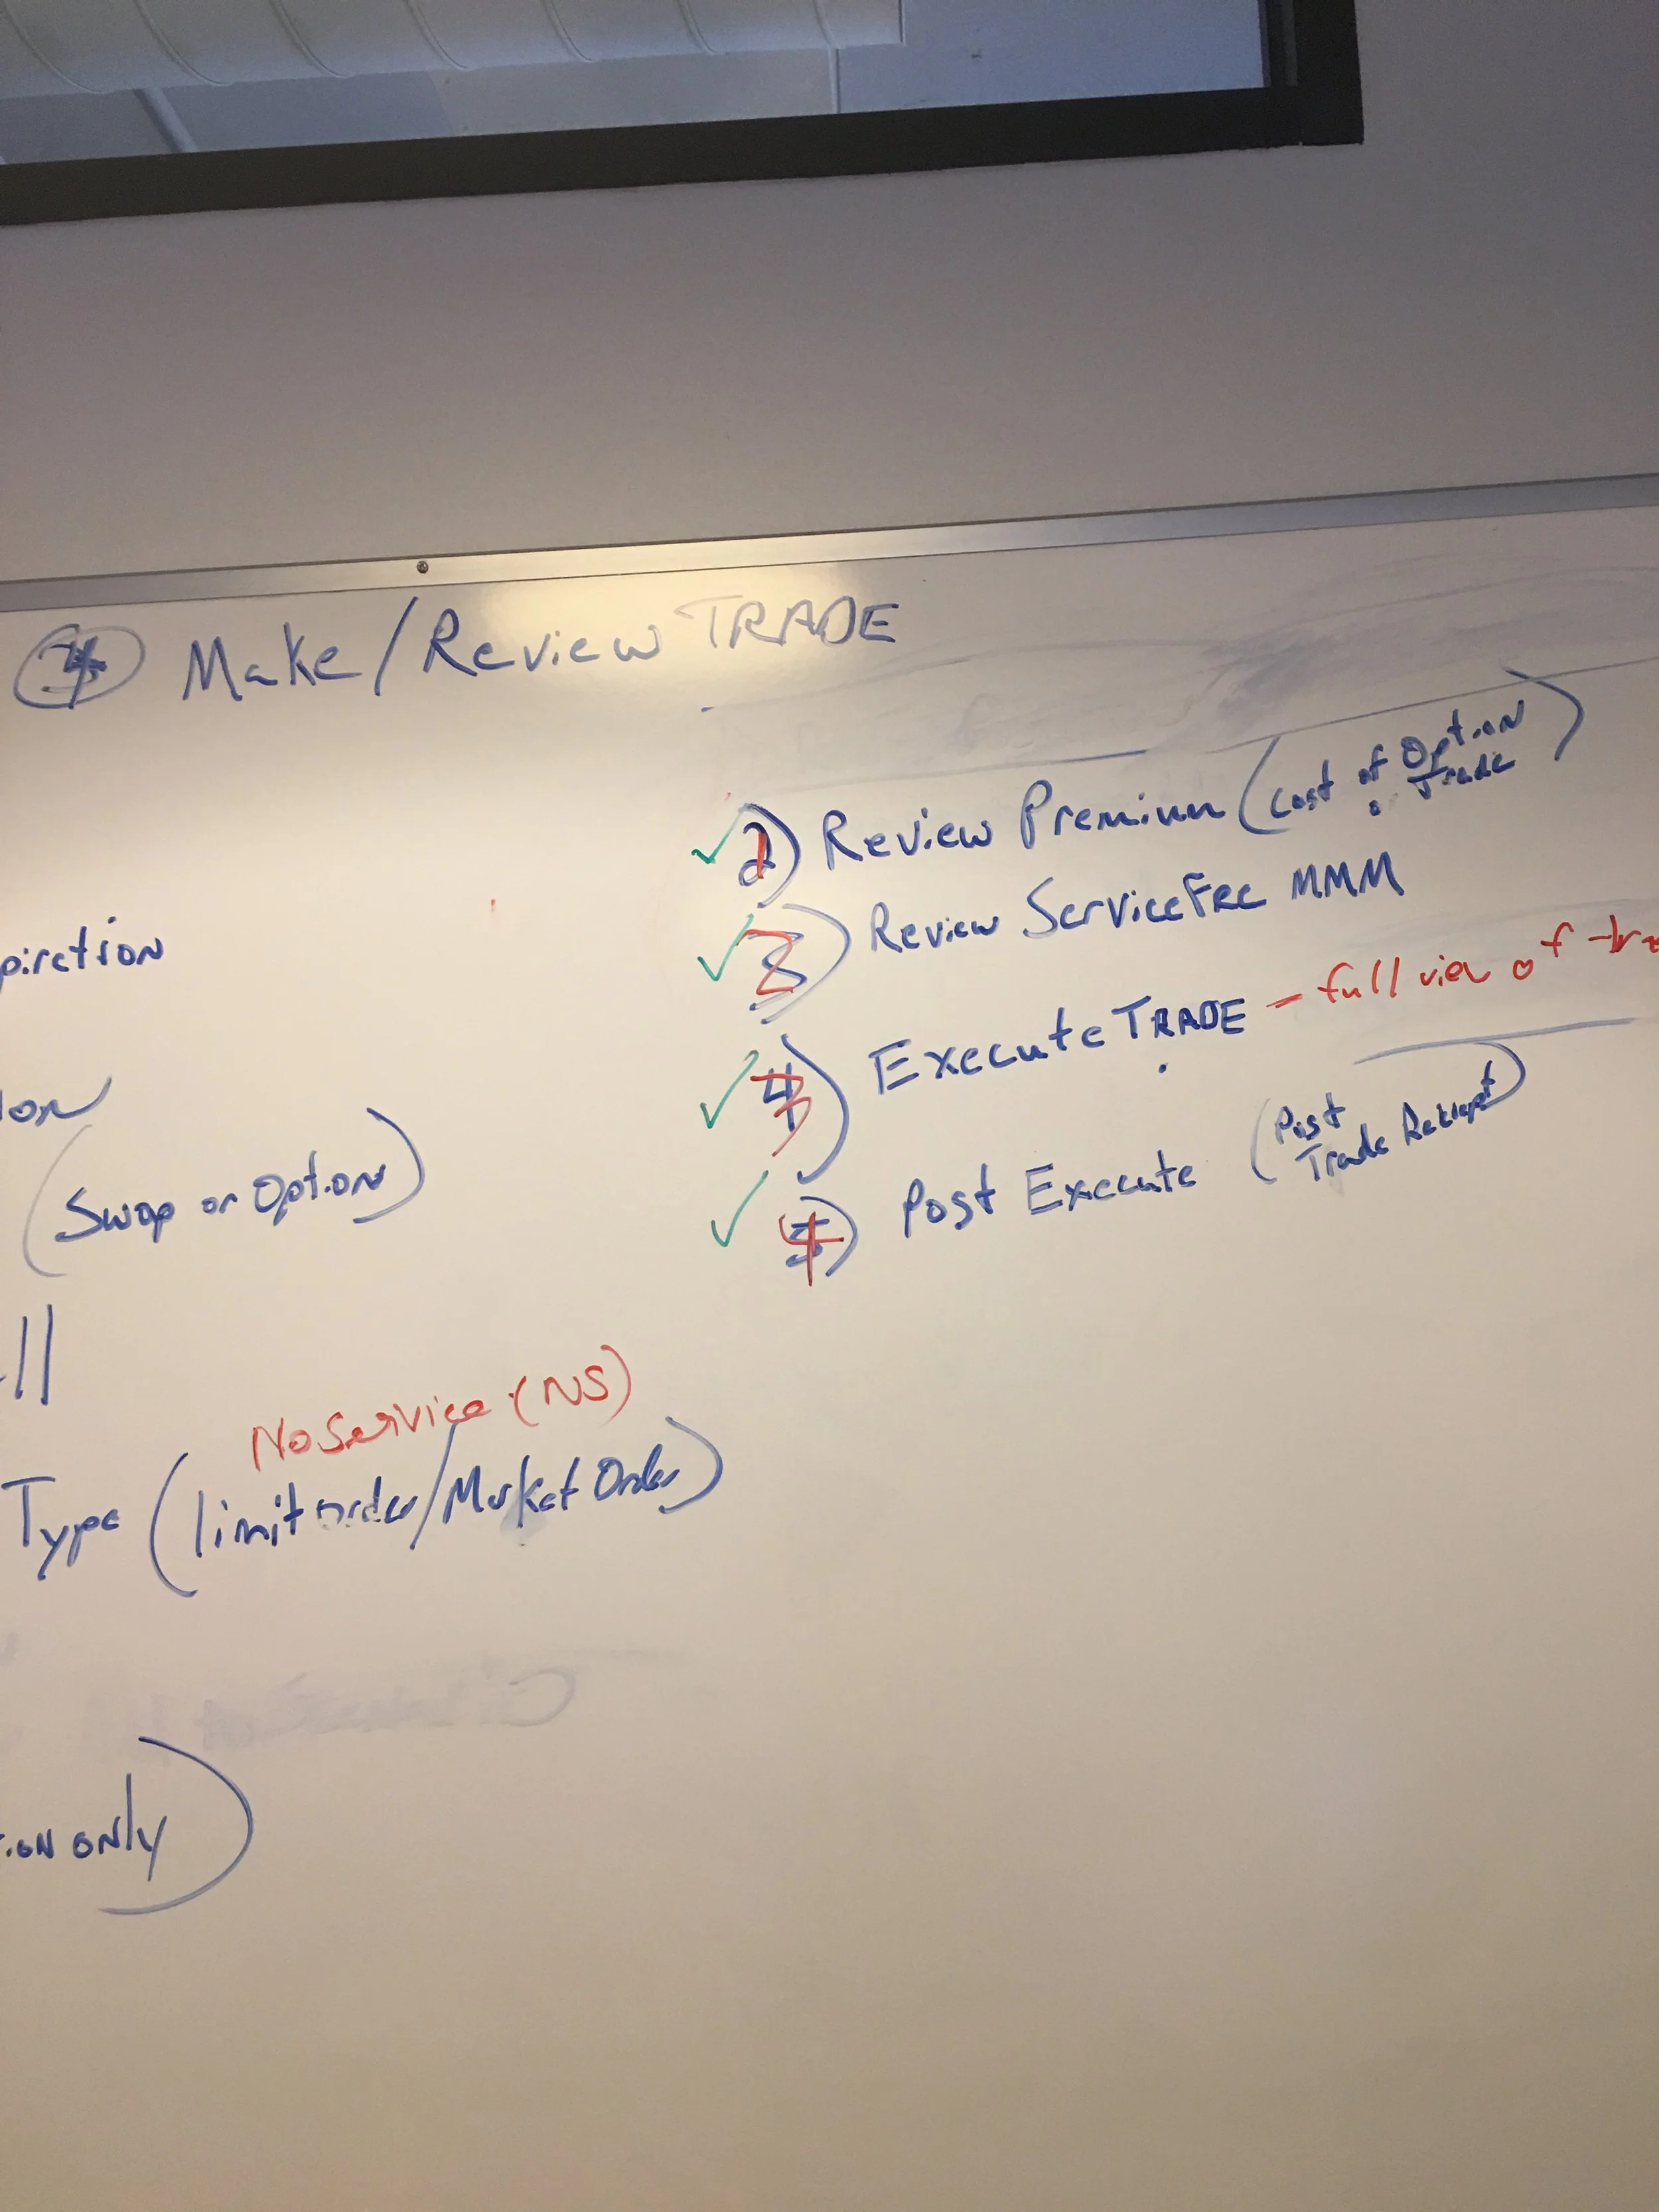 Make/Review TRADE
1) Review Premium (Cost of Option Trade)
2) Review Service Fee MMM
3) Execute TRADE - full view of tra
4) Post Execute (Post Trade Reciept)
piration
ion
(Swap or Option)
ll
No Service (NS)
Type (limit order/Market Order)
ion only)